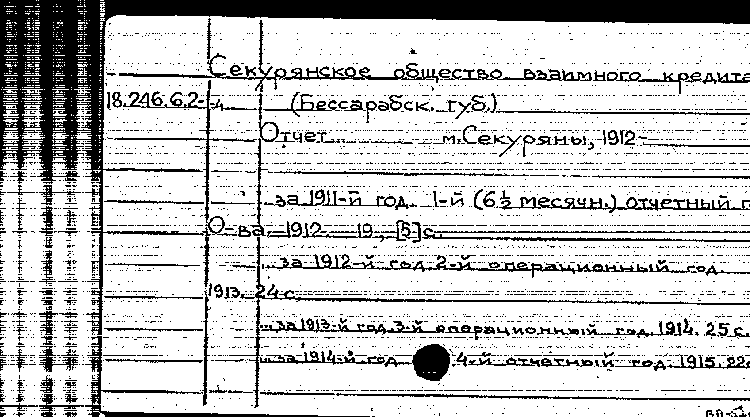 Секурянское общество взаимного кредита
18.246.6.2-4 (Бессарабск. губ.)
Отчет ... м. Секуряны, 1912-
... за 1911-й год. 1-й (6½ месячн.) отчетный г
О-ва. 1912. 19, [5] с.
... за 1912-й год. 2-й операционный год.
1913. 24 с.
... за 1913-й год. 3-й операционный год. 1914. 25 с.
... за 1914-й год 4-й отчетный год. 1915. 22с